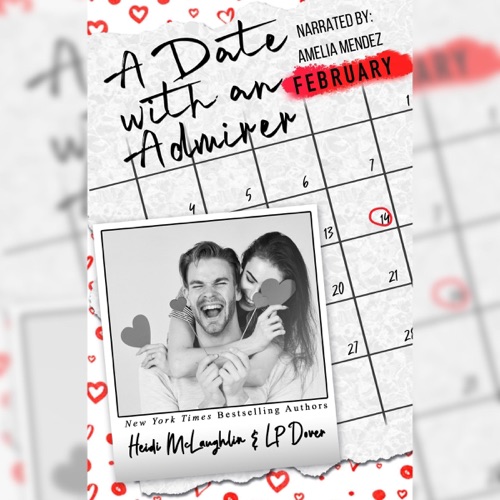 A Date
with an
Admirer
NARRATED BY:
AMELIA MENDEZ
FEBRUARY
1
4
5
6
7
13
14
20
21
27
28
New York Times Bestselling Authors
Heidi McLaughlin & LP Dover